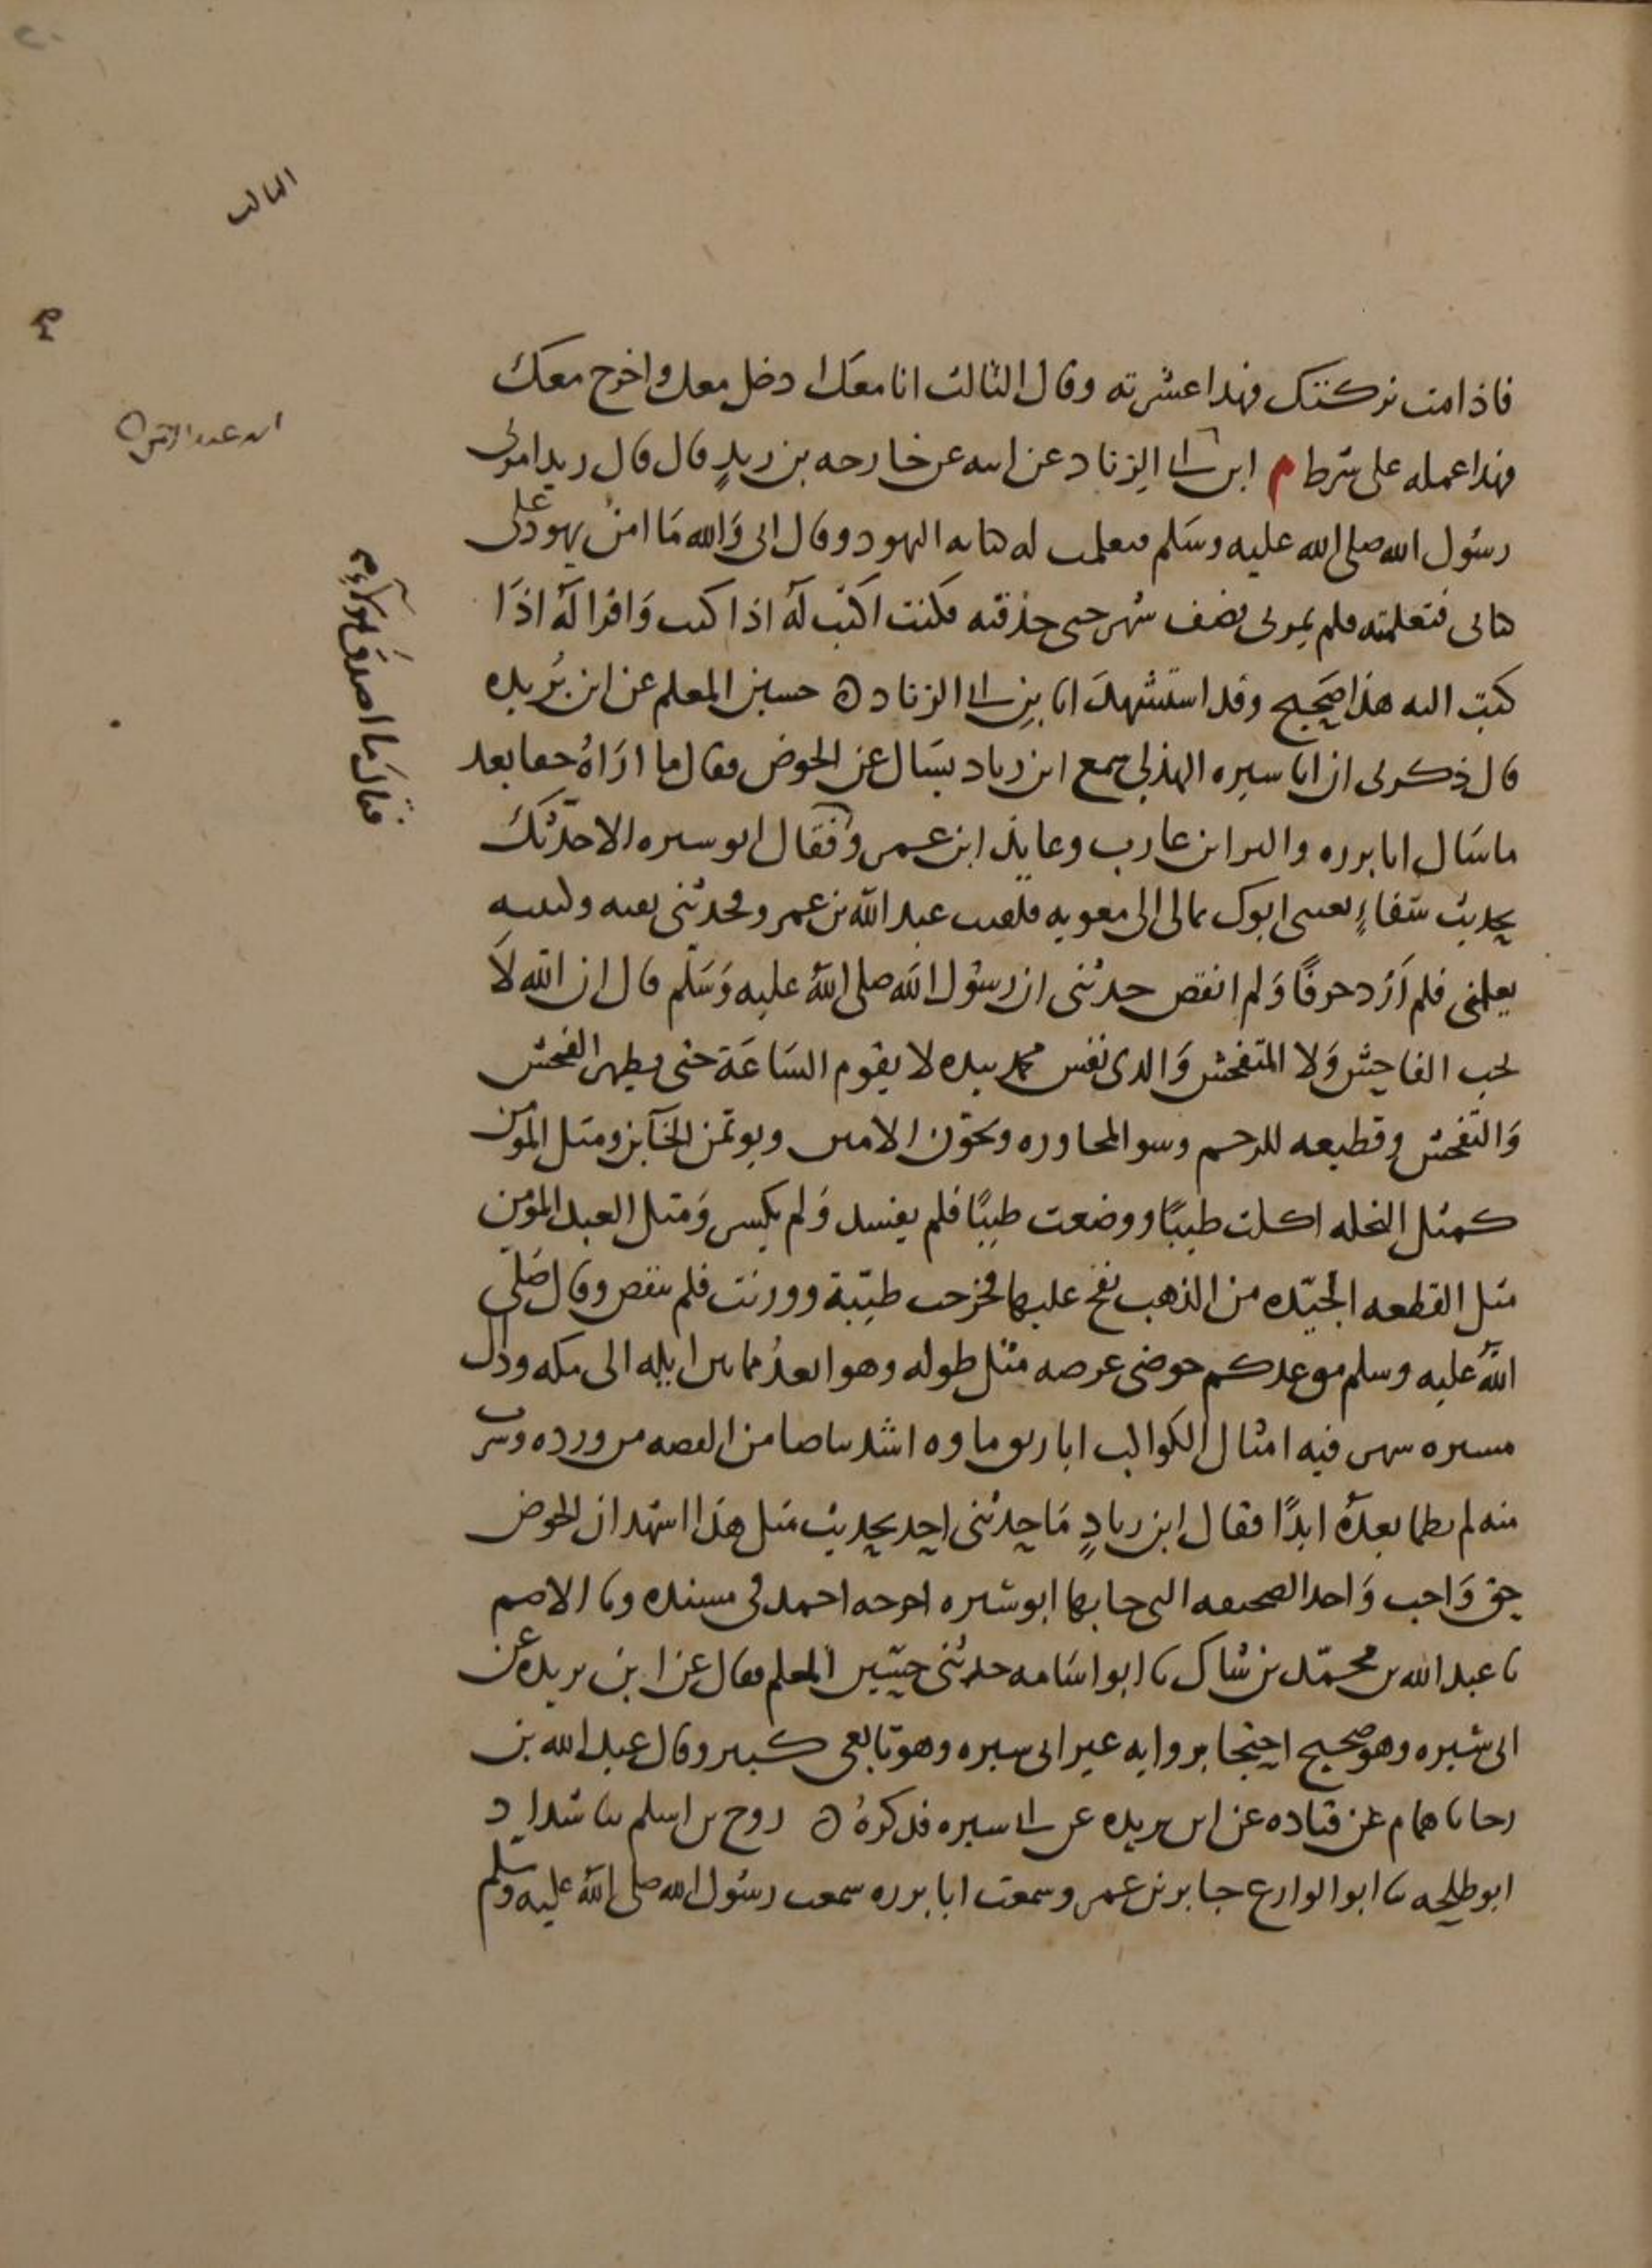 فاذا مت تركتك فهذا عشيرته وقال الثالث انا معك ادخل معك واخرج معك
فهذا عمله على شرط م ابن ابى الزناد عن ابيه عن خارجه بن زيدٍ قال قال زيد امرنى
رسُول الله صلى الله عليه وسَلم فتعلمت له كتابه اليهود وقال انى وَالله مَا امنُ يهود على
كتابى فتعلمته فلم يمر بى نصف شهر حتى حذقته فكنت اكتب لهُ اذا كتب وَاقرا لهُ اذَا
كتب اليه هذا صَحيح وقد استشهدَ ابا بن ابى الزناد ه حسين المعلم عن ابن بُريده
قال ذكر لى ان ابا سبره الهذلى سمع ابن زياد يسَال عن الحوض فقال ما ارَاهُ حقا بعد
ما سَال ابا برزه والبرا بن عازب وعايذ ابن عمرو فقال ابو سبره الا احدّثك
بحديث شفاءٍ بعثنى ابوك بمال الى معويه فلقيت عبد الله بن عمرو فحدثنى بفيه وكتبته
بقلمى فلم اَزد حرفًا وَلم انقص حدثنى ان رسُول الله صلى اللهُ عليه وَسَلّم قال ان الله لَا
يحب الفاحِش وَلا المتفحش وَالذى نفس محمد بيده لا يقوم السَاعَة حتى يظهر الفحش
وَالتفحش وقطيعه للرحم وسو المجاوره ويخون الامين ويوتمن الخاين ومثل المومن
كمثل النخله اكلت طيبًا ووضعت طيبًا فلم يفسد وَلم يكسر وَمثل العبد المومن
مثل القطعه الجيّده من الذهب نفخ عليها فخرجت طيّبة ووزنت فلم تنقص وقال صَلى
اللهُ عليه وسلم موعدكم حوضى عرضه مثل طوله وهو ابعدُ مما بين ايله الى مكه وذاك
مسيره شهر فيه امثال الكواكب اباريق ماوه اشد بياضا من الفضه من ورده وشرب
منه لم يظما بعدهُ ابدًا فقال ابن زيادٍ مَا حدثنى احد بحديث مثل هذا اشهد ان الحوض
حق وَاجب وَاخذ الصحيفه التى جا بها ابو سبره اخرجه احمد فى مسنده ونا الاصم
نا عبد الله بن محمّد بن شاكر نا ابو اسَامه حدثنى حسين المعلم فقال عن ابن بريده عن
ابى سبره وهو صحيح احتجا برواته غير ابى سبره وهو تابعى كبير وقال عبد الله بن
رجا نا همام عن قتاده عن ابن بريده عن ابى سبره فذكرهُ ه روح بن اسلم نا شداد
ابو طلحه نا ابو الوازع جابر بن عمرو سمعت ابا برزه سمعت رسُول الله صلى اللهُ عليه وسلم
فقال مَا اصدق هؤلاء